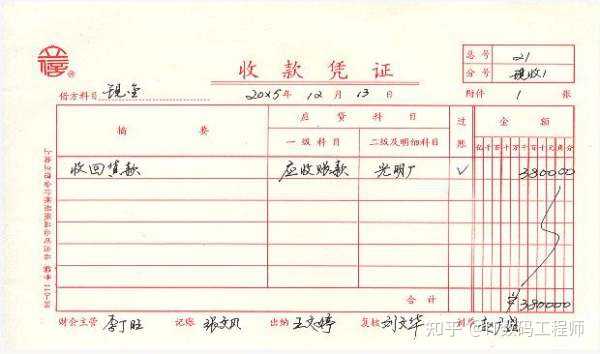 立信®
收款凭证
总号 21
分号 现收1
借方科目 现金 20×5年 12月 13日 附件 1 张
摘要 应贷科目 过账 金额
一级科目 二级及明细科目 亿千百十万千百十元角分
收回货款 应收账款 光明厂 √ 380000
合计 ¥380000
财会主管 李丁旺 记账 张文凡 出纳 王文婷 复核 刘文华 制单
知乎 @代码工程师